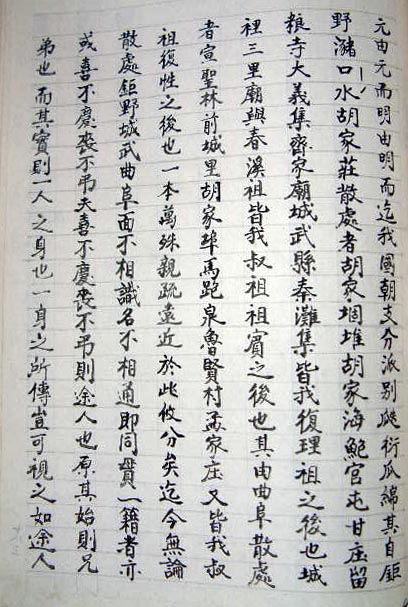 元由元而明由明而迄我國朝支分派别瓞衍瓜綿其自鉅
野潴口水胡家莊散處者胡家堌堆胡家海鮑官屯甘庄留
粮寺大義集齊家廟城武縣秦灘集皆我復理祖之後也城
裡三里廟與春溪祖皆我叔祖祖賓之後也其由曲阜散處
者宣聖林前城里胡家埠馬跑泉魯賢村孟家庄又皆我叔
祖復性之後也一本萬殊親疏遠近於此攸分矣迄今無論
散處鉅野城武曲阜面不相識名不相通即同貫一籍者亦
或喜不慶喪不弔夫喜不慶喪不弔則途人也原其始則兄
弟也而其實則一人之身也一身之所傳豈可視之如途人